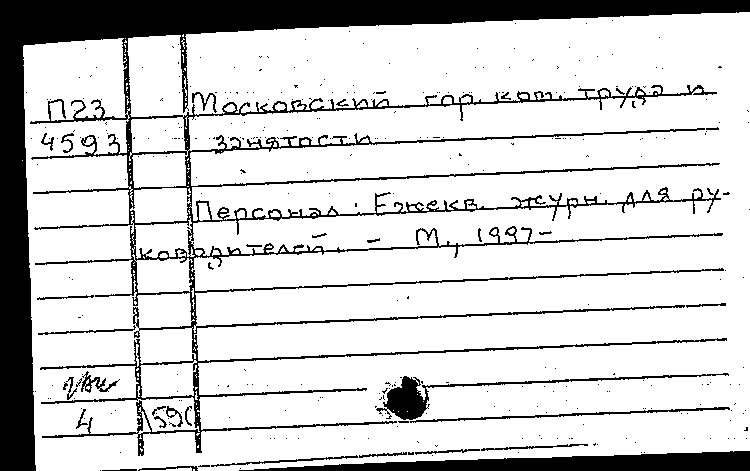 П23 Московский гор. ком. труда и
4593 занятости
Персонал: Ежекв. журн. для ру-
ководителей. – М., 1997-
4